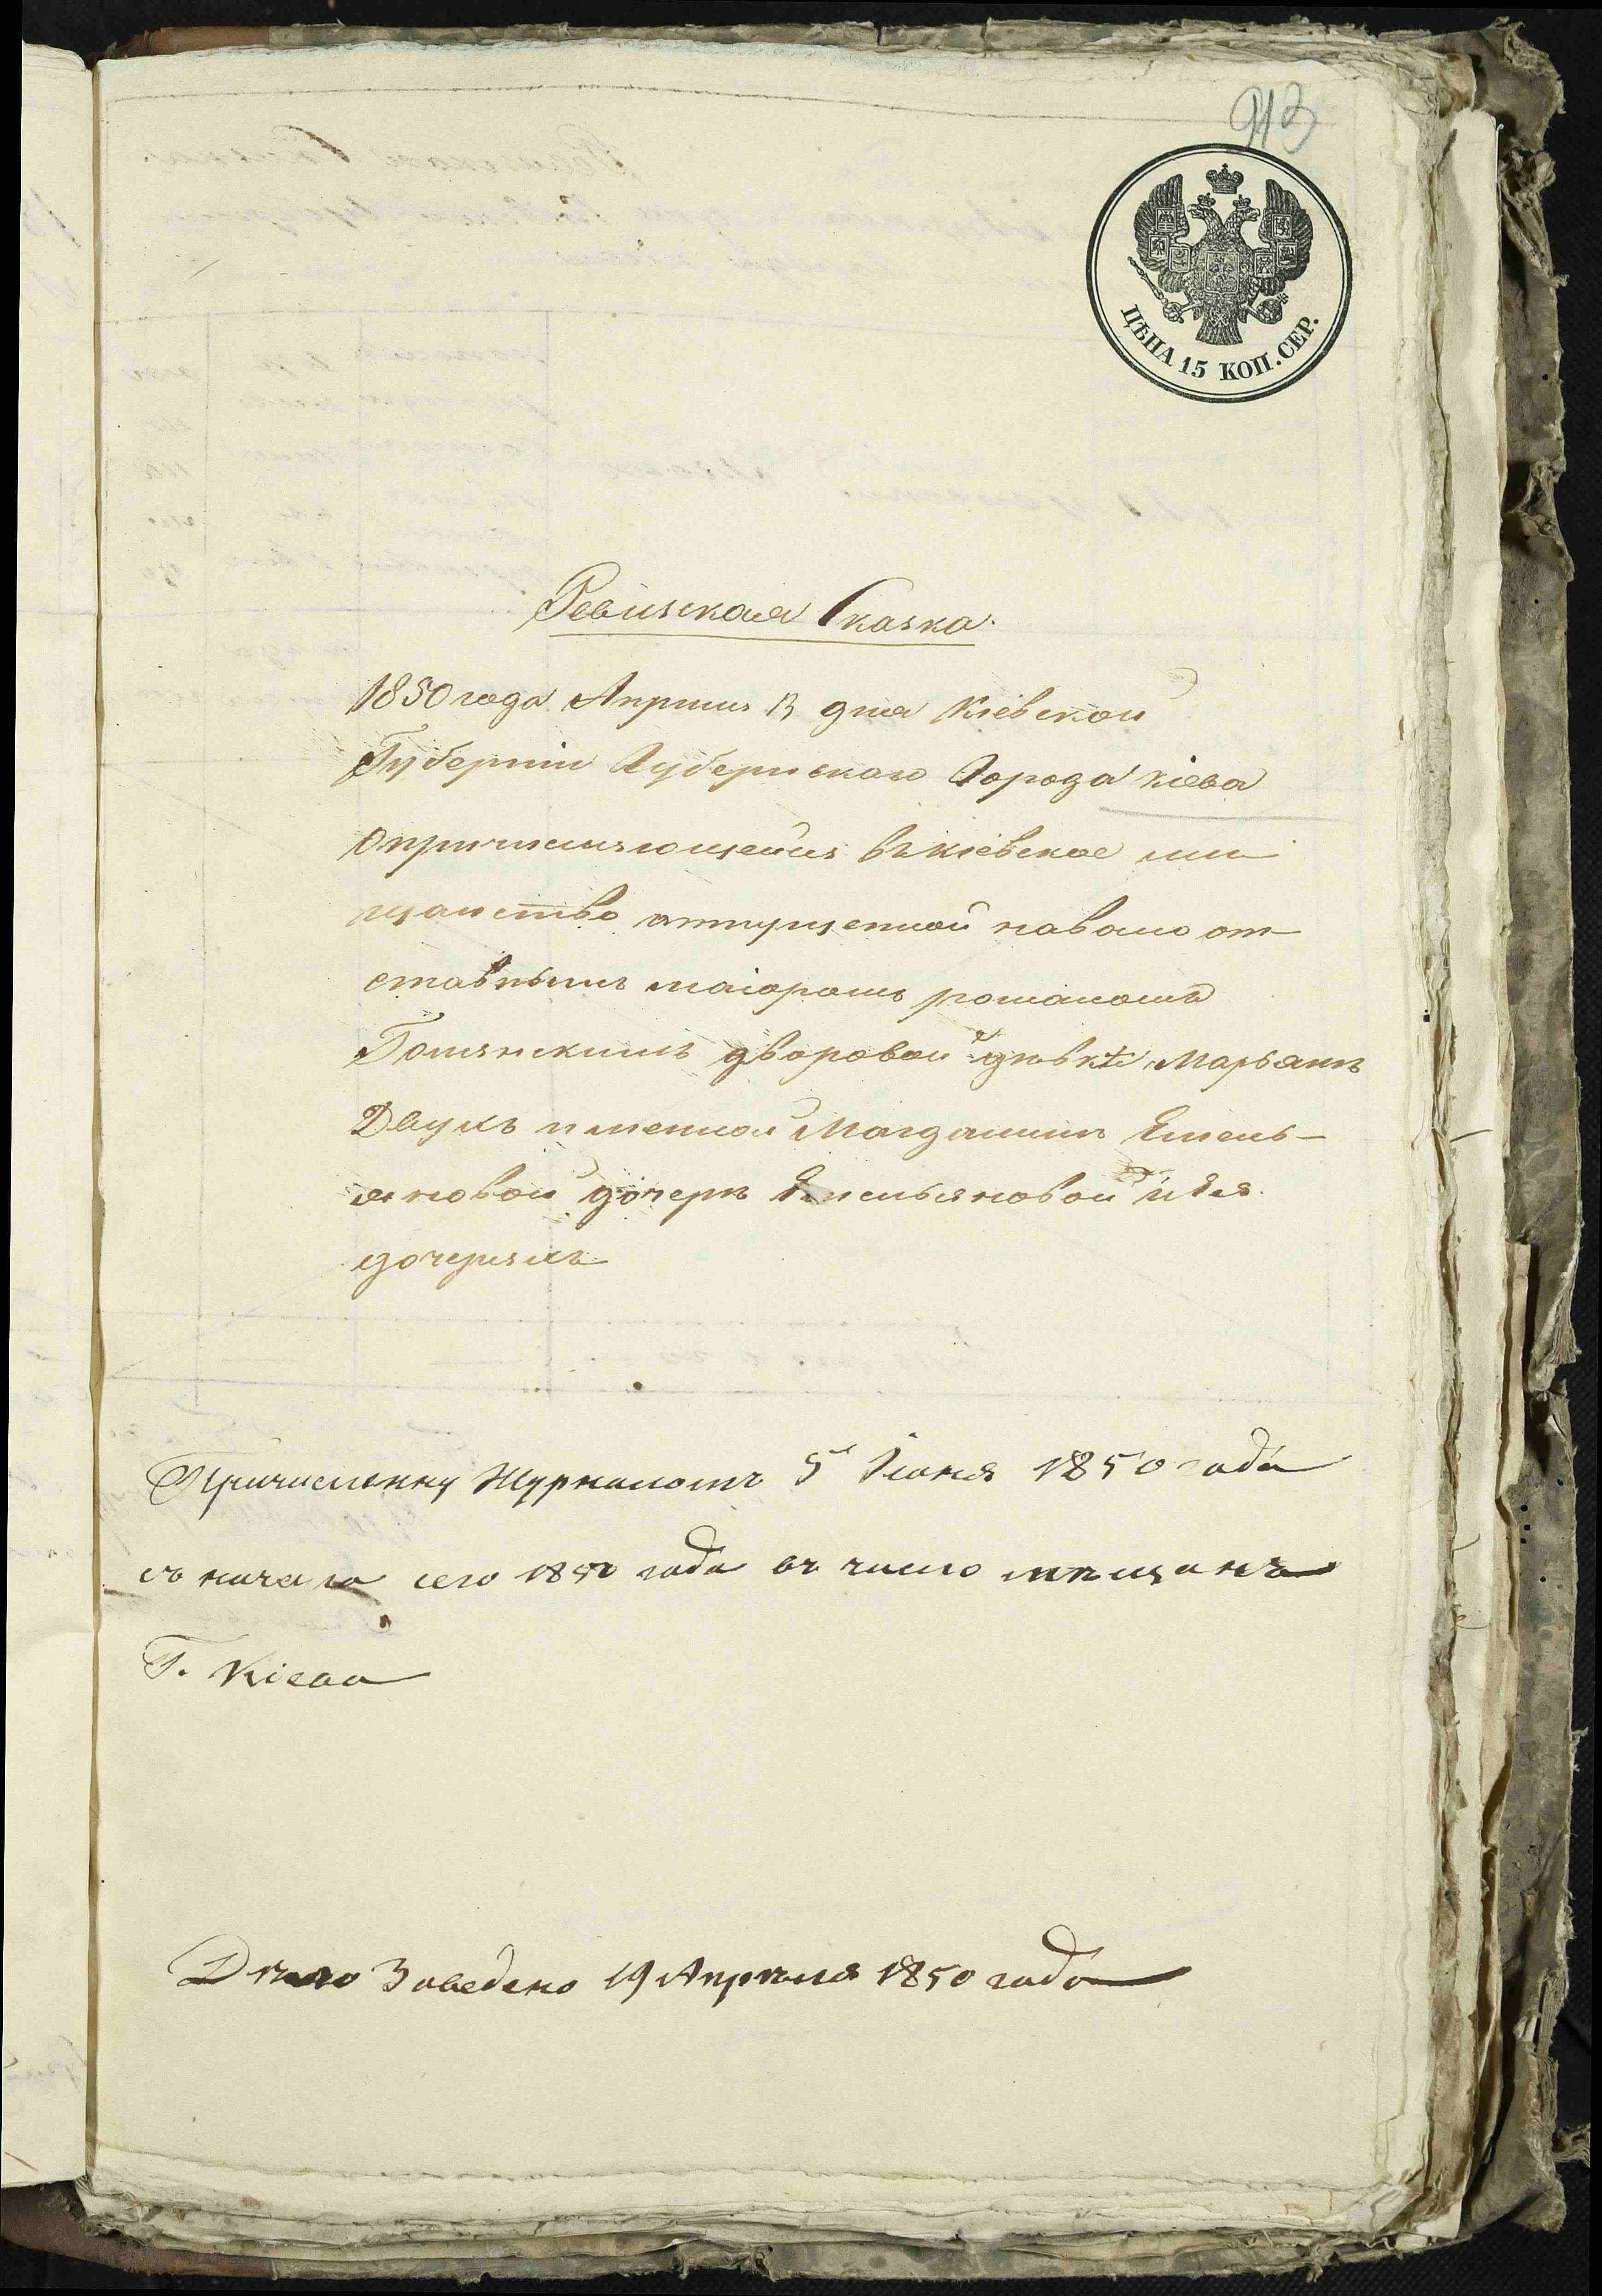 913
ЦѢНА 15 КОП. СЕР.
Ревизская Сказка.
1850 года Апрѣля 13 дня Кіевской
Губерніи Губернскаго Города Кіева
О причисляющейся въ кіевское мѣ
щанство отпущенной наволю от-
ставнымъ маіоромъ романомъ
дворовой дѣвкѣ Марьянѣ
Двухъ именной Магдалинѣ Емель-
яновой дочери Емельяновой и ея
дочеряхъ
Причисленну Журналомъ 5 Іюня 1850 года
съ начала сего 1850 года въ число мѣщанъ
Г. Кіева
Дѣло Заведено 19 Апрѣля 1850 года